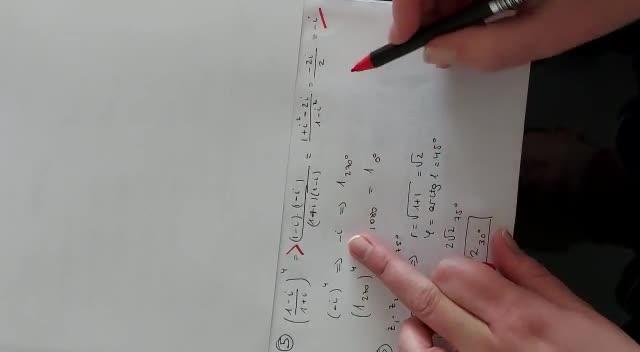 5) (1-i / 1+i)^4 => (1-i)·(-i) / (1+i)(1-i) = 1+i²-2i / 1-i² = -2i / 2 = -i
(-i)^4 => -i => 1 270°
(1 270)^4 1080 = 1 0°
z₁·z₂ 75°
=> r = √1+1 = √2
φ = arctg 1 = 45°
2√2 75°
2 30°